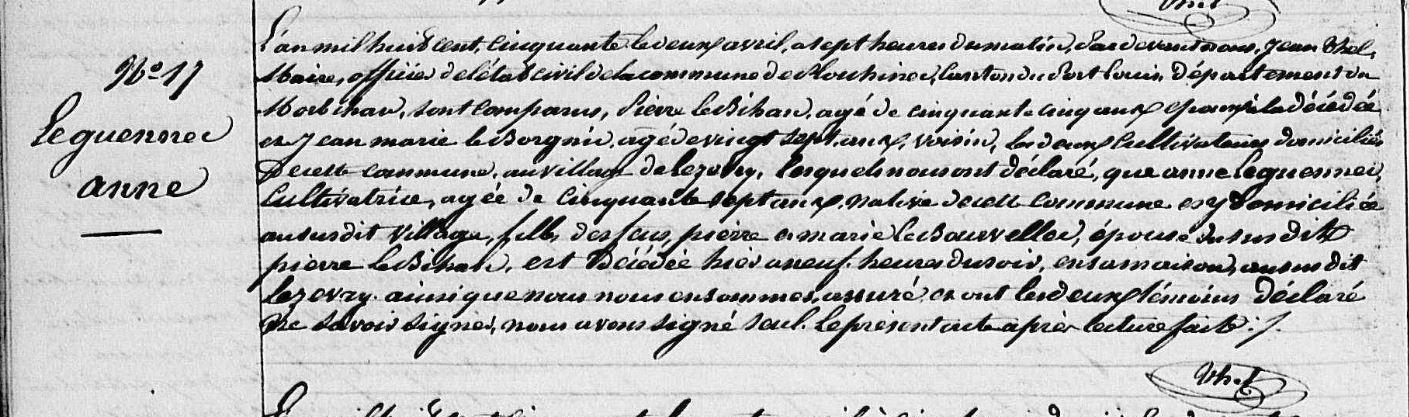 N.º 17
Le guennec
anne
L'an mil huit cent cinquante le deux avril, a sept heures du matin, Pardevant nous, Jean Thel,
Maire, officier de l'état civil de la commune de Plouhinec, Canton du Port Louis, Département du
Morbihan, sont comparus, Pierre le Bihan, agé de cinquante cinq ans, epoux à la décédée
et Jean marie le Borgnic, agé de vingt sept ans, voisin, les deux Cultivateurs domiciliés
De cette commune, au village de Lezevry, lesquels nous ont déclaré, que anne Le guennec,
Cultivatrice, agée de Cinquante sept ans, native de cette Commune et y Domiciliée
au susdit village, fille des feus, pierre et marie le Bourvellec, épouse du susdit
pierre le Bihan, est Décédée hier a neuf heures du soir, en sa maison, au susdit
Lezevry. ainsi que nous nous en sommes assuré, et ont les deux témoins déclaré
Ne savoir signer, nous avons signé seul Le présent acte après lecture faite ./.
Thel